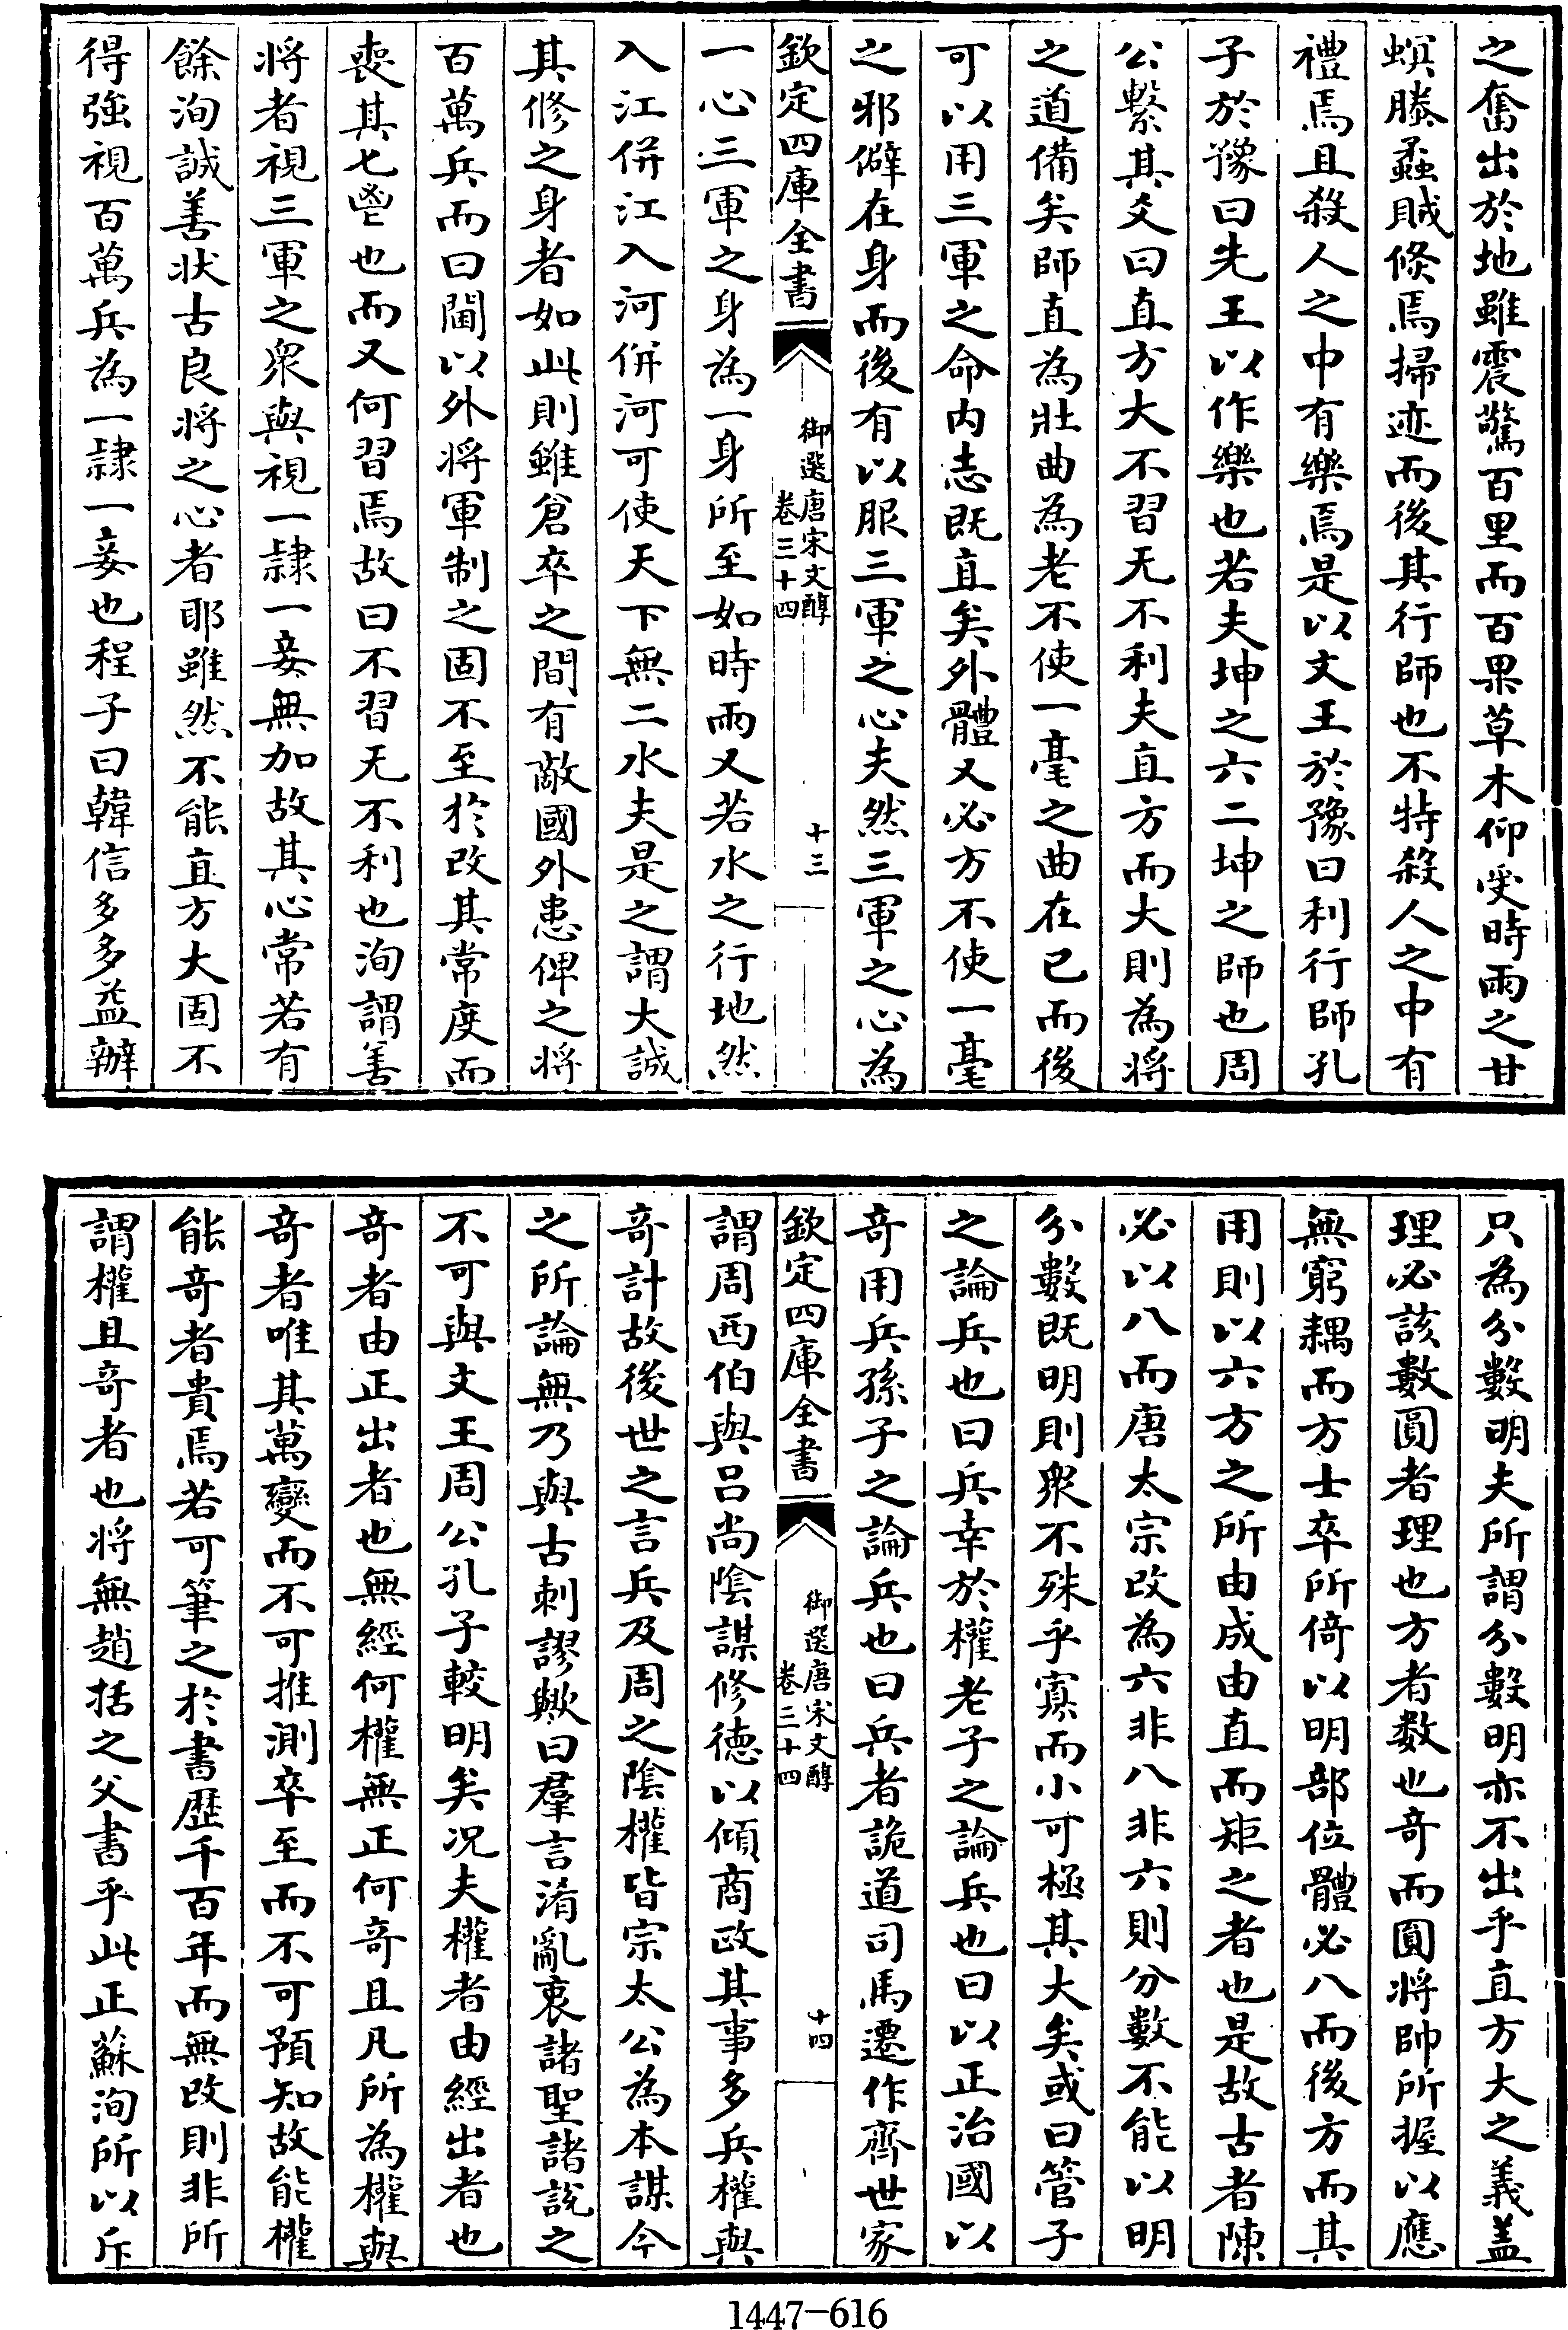 之奮出於地雖震驚百里而百果草木仰受時雨之甘
螟螣蟊賊倏焉掃迹而後其行師也不特殺人之中有
禮焉且殺人之中有樂焉是以文王於豫曰利行師孔
子於豫曰先王以作樂也若夫坤之六二坤之師也周
公繫其爻曰直方大不習无不利夫直方而大則為將
之道備矣師直為壯曲為老不使一毫之曲在已而後
可以用三軍之命内志既直矣外體又必方不使一毫
之邪僻在身而後有以服三軍之心夫然三軍之心為
欽定四庫全書
御選唐宋文醇
卷三十四
十三
一心三軍之身為一身所至如時雨又若水之行地然
入江併江入河併河可使天下無二水夫是之謂大誠
其修之身者如此則雖倉卒之間有敵國外患俾之将
百萬兵而曰閫以外将軍制之固不至於改其常度而
喪其七鬯也而又何習焉故曰不習无不利也洵謂善
将者視三軍之衆與視一隷一妾無加故其心常若有
餘洵誠善狀古良将之心者耶雖然不能直方大固不
得強視百萬兵為一隷一妾也程子曰韓信多多益辦
只為分數明夫所謂分數明亦不出乎直方大之義蓋
理必該數圓者理也方者数也奇而圓将帥所握以應
無窮耦而方士卒所倚以明部位體必八而後方而其
用則以六方之所由成由直而矩之者也是故古者陳
必以八而唐太宗改為六非八非六則分數不能以明
分數既明則衆不殊乎寡而小可極其大矣或曰管子
之論兵也曰兵幸於權老子之論兵也曰以正治國以
奇用兵孫子之論兵也曰兵者詭道司馬遷作齊世家
欽定四庫全書
御選唐宋文醇
卷三十四
十四
謂周西伯與吕尚陰謀修德以傾商政其事多兵權與
奇計故後世之言兵及周之陰權皆宗太公為本謀今
之所論無乃與古刺謬歟曰羣言淆亂衷諸聖諸說之
不可與文王周公孔子較明矣况夫權者由經出者也
奇者由正出者也無經何權無正何奇且凡所為權與
奇者唯其萬變而不可推測卒至而不可預知故能權
能奇者貴焉若可筆之於書歷千百年而無改則非所
謂權且奇者也将無趙括之父書乎此正蘇洵所以斥
1447-616